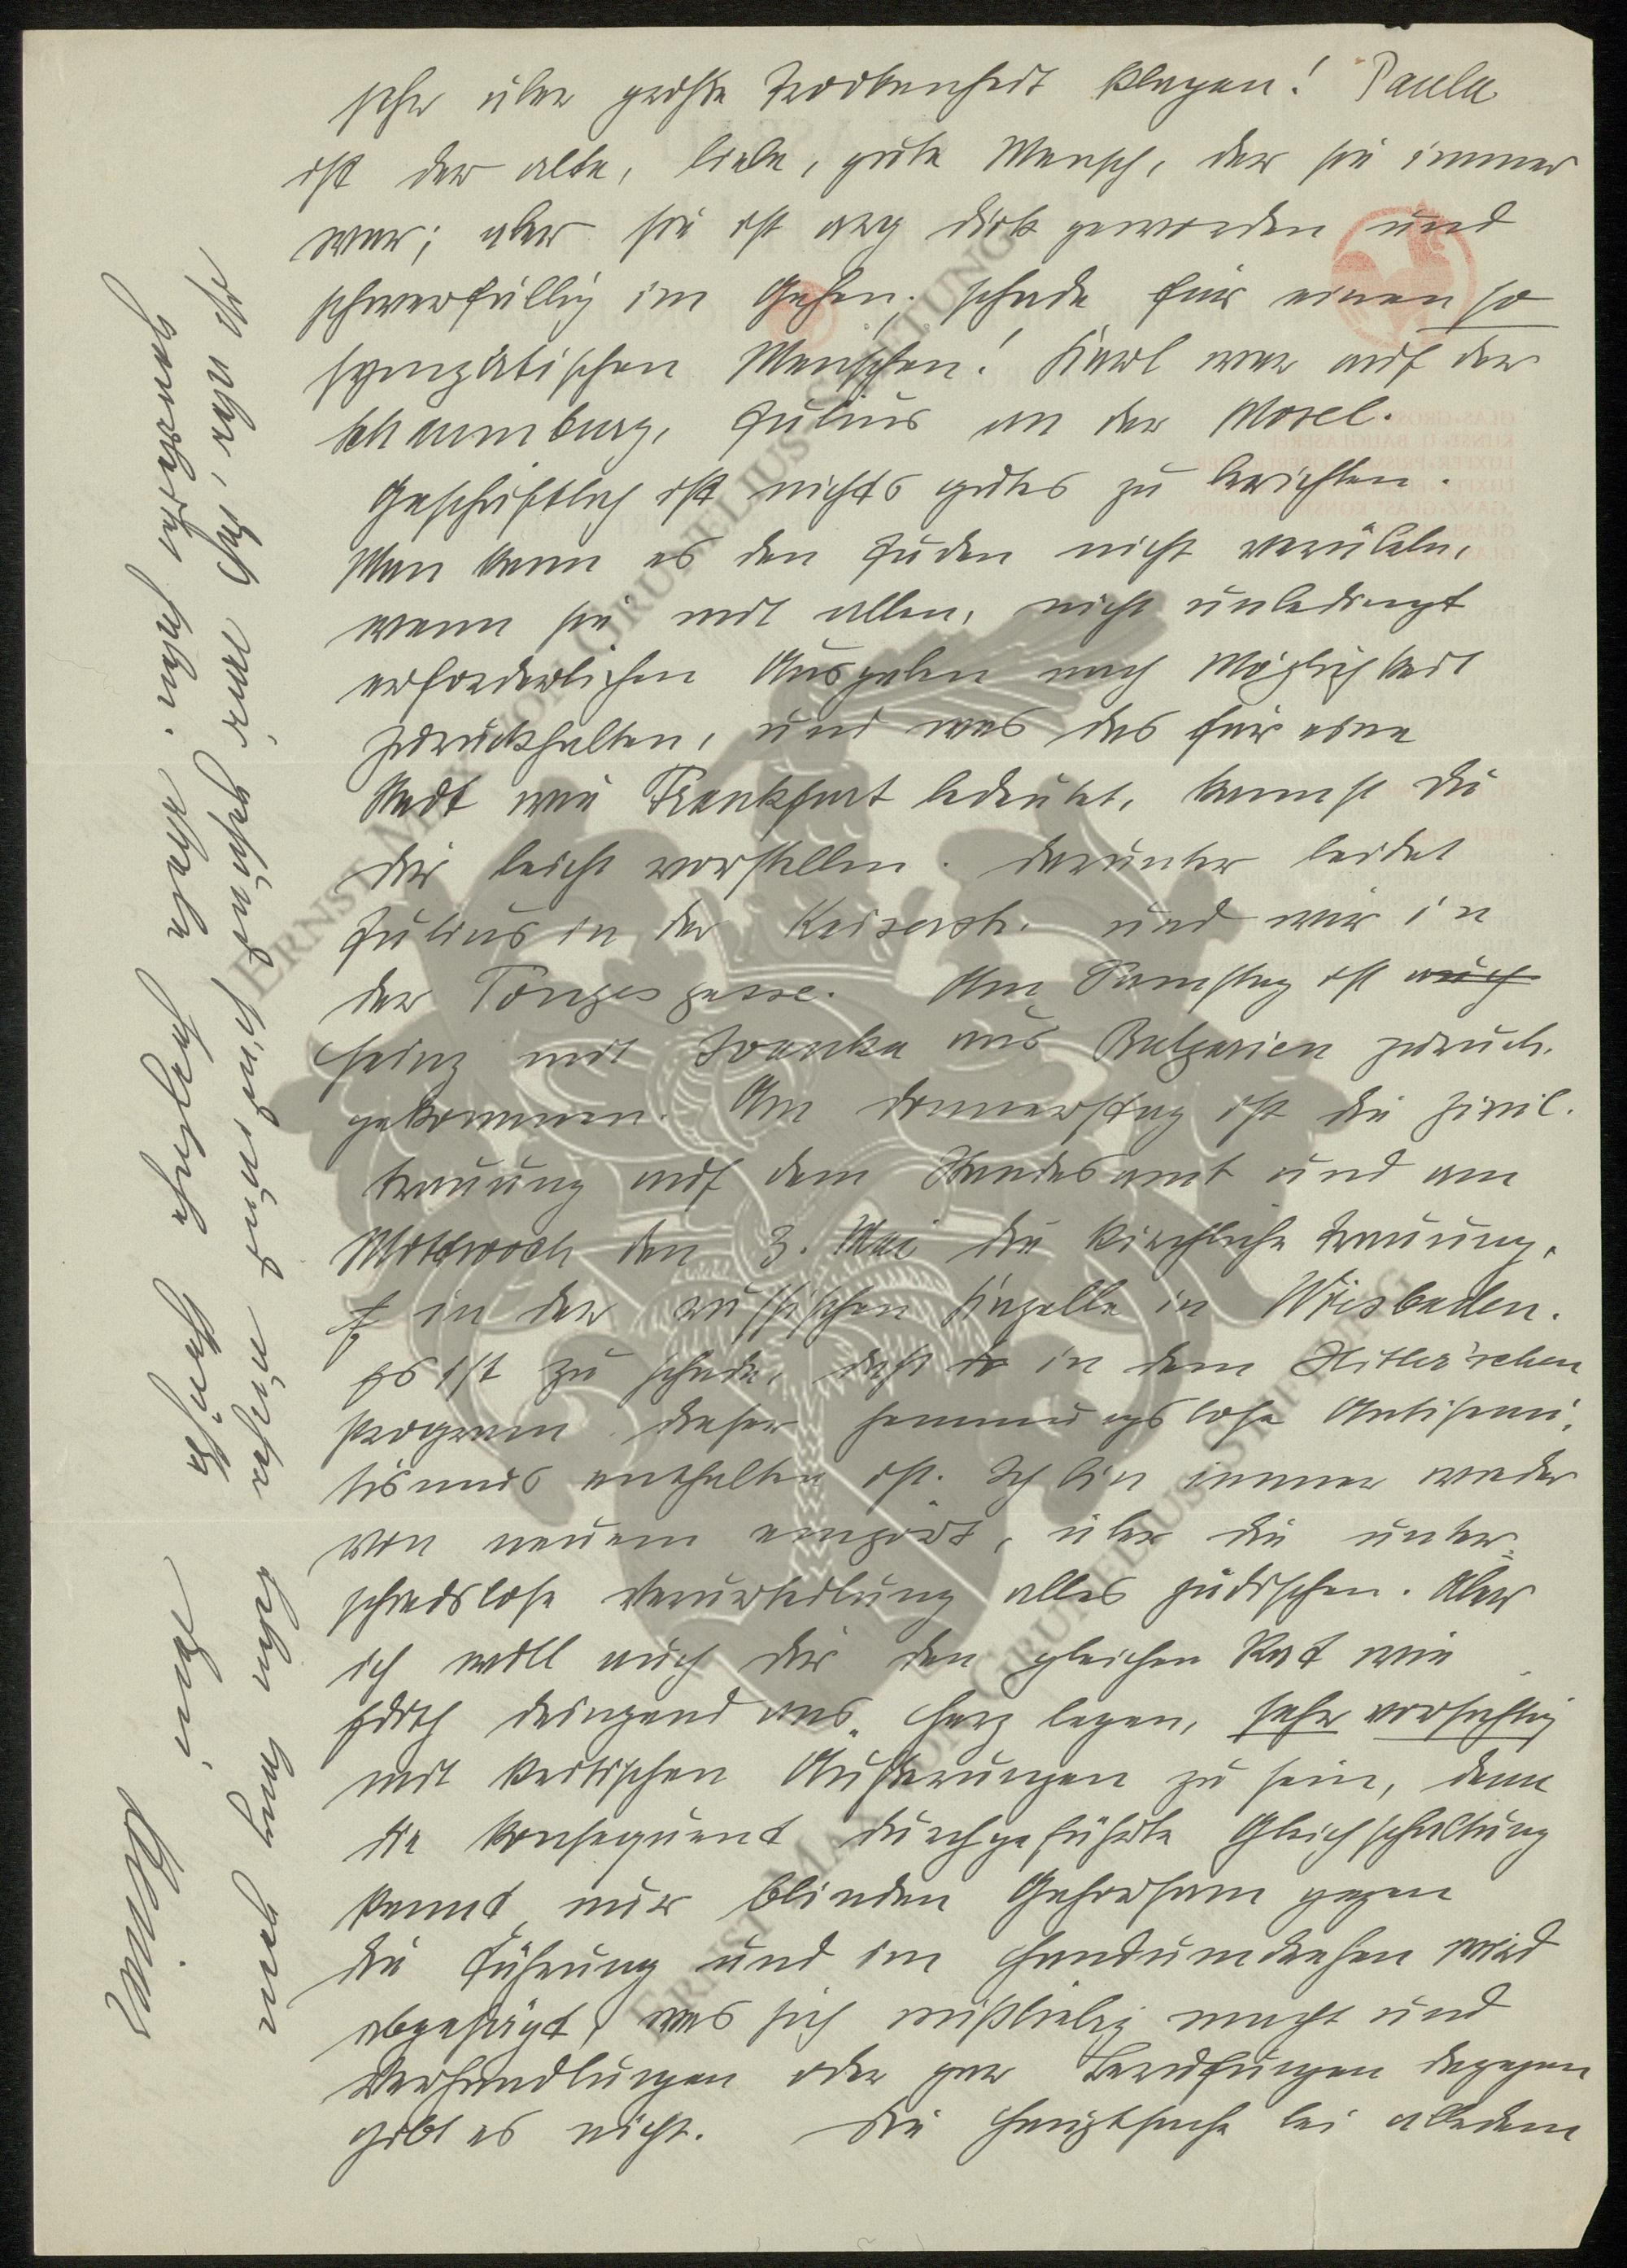 sehr über große Trockenheit klagen! Paula
ist der alte, liebe, gute Mensch, der sie immer
war; aber sie ist arg dick geworden und
schwerfällig im Gehen; schade für einen so
sympatischen Menschen! Karl war auf der
Schaumburg, Julius an der Mosel.
Geschäftlich ist nichts gutes zu berichten.
Man kann es den Juden nicht verübeln,
wenn sie mit allen, nicht unbedingt
erforderlichen Ausgaben nach Möglichkeit
zurückhalten, und was das für eine
Stadt wie Frankfurt bedeutet, kannst Du
Dir leicht vorstellen. Darunter leidet
Julius in der Kaiserstr. und wir in
der Töngesgasse. Am Samstag ist auch
Heinz mit Ivanka aus Bulgarien zurück-
gekommen. Am Donnerstag ist die Zivil-
trauung auf dem Standesamt und am
Mittwoch den 3. Mai die kirchliche Trauung,
in der russischen Kapelle in Wiesbaden.
Es ist zu schade, daß in dem Hitler'schen
Program dieser hemmungslose Antisemi-
tismus enthalten ist. Ich bin immer wieder
von neuem empört, über die unter-
schiedslose Verurteilung alles jüdischen. Aber
ich will auch Dir den gleichen Rat wie
Edith dringend ans Herz legen, sehr vorsichtig
mit kritischen Äußerungen zu sein, denn
die konsequent durchgeführte Gleichschaltung
kennt nur blinden Gehorsam gegen
die Führung und im Handumdrehen wird
abgesägt, was sich mißliebig macht und
Verhandlungen oder gar Berufungen dagegen
gibt es nicht. Die Hauptsache bei alledem
ERNST MAX VON GRUNELIUS-STIFTUNG
ERNST MAX VON GRUNELIUS-STIFTUNG